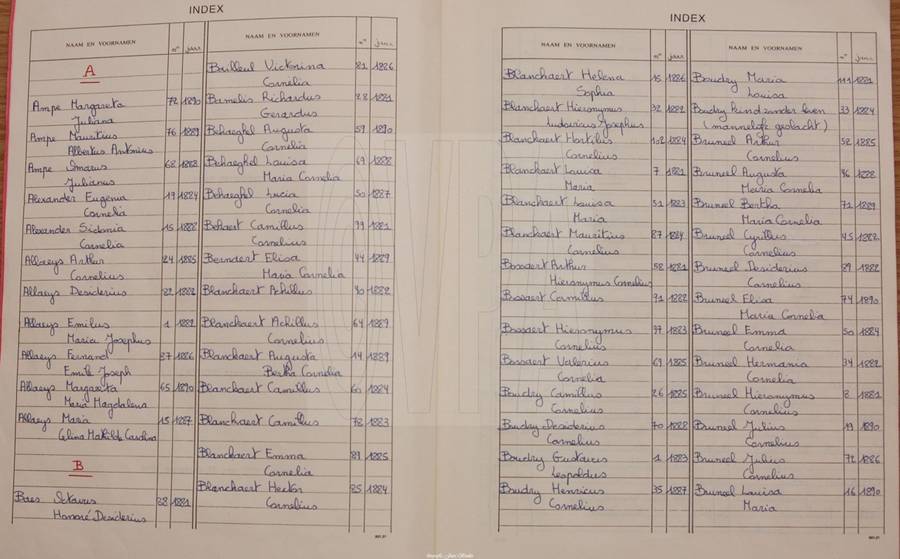 INDEX
NAAM EN VOORNAMEN n° jaar
A
Ampe Margareta 72 1890
Juliana
Ampe Mauritius 76 1889
Albertus Antonius
Ampe Omarus 68 1888
Julianus
Alexander Eugenia 19 1884
Cornelia
Alexander Sidonia 15 1882
Cornelia
Allaeys Arthur 24 1885
Cornelius
Allaeys Desiderius 82 1882
Allaeys Emilus 1 1882
Maria Josephus
Allaeys Fernand 37 1886
Emile Joseph
Allaeys Margareta 65 1890
Maria Magdalena
Allaeys Maria 15 1887
Celina Mathilde Carolina
B
Baes Octavus 28 1881
Honoré Desiderius
NAAM EN VOORNAMEN n° jaar
Bailleul Victorina 81 1886
Cornelia
Bamelis Richardus 28 1881
Gerardus
Behaeghel Augusta 59 1890
Cornelia
Behaeghel Louisa 69 1888
Maria Cornelia
Behaeghel Lucia 50 1887
Cornelia
Behaert Camillus 99 1881
Cornelius
Berndaert Elisa 44 1889
Maria Cornelia
Blanchaert Achillus 40 1882
Blanchaert Achillus 64 1889
Cornelius
Blanchaert Augusta 14 1889
Bertha Cornelia
Blanchaert Camillus 60 1884
Blanchaert Camillus 78 1883
Blanchaert Emma 89 1885
Cornelia
Blanchaert Hector 85 1884
Cornelius
INDEX
NAAM EN VOORNAMEN n° jaar
Blanchaert Helena 15 1886
Sophia
Blanchaert Hieronymus 32 1882
Ludovicus Josephus
Blanchaert Hortilus 102 1884
Cornelius
Blanchaert Louisa 7 1881
Maria
Blanchaert Louisa 51 1883
Maria
Blanchaert Mauritius 87 1884
Cornelius
Bossaert Arthur 58 1881
Hieronymus Cornelius
Bossaert Camillus 91 1882
Bossaert Hieronymus 97 1883
Cornelius
Bossaert Valerius 69 1885
Cornelia
Boudry Camillus 26 1885
Cornelius
Boudry Desiderius 70 1888
Cornelius
Boudry Gustavus 1 1883
Leopoldus
Boudry Henricus 35 1887
Cornelius
NAAM EN VOORNAMEN n° jaar
Boudry Maria 111 1881
Louisa
Boudry kind zonder leven 33 1884
(mannelijk geslacht)
Bruneel Arthur 52 1885
Cornelius
Bruneel Augusta 96 1888
Maria Cornelia
Bruneel Bertha 71 1889
Maria Cornelia
Bruneel Cyrillus 45 1882
Cornelius
Bruneel Desiderius 89 1882
Cornelius
Bruneel Elisa 74 1890
Maria Cornelia
Bruneel Emma 50 1884
Cornelia
Bruneel Hermania 34 1882
Cornelia
Bruneel Hieronymus 8 1881
Cornelius
Bruneel Julius 19 1890
Cornelius
Bruneel Julius 72 1886
Cornelius
Bruneel Louisa 16 1890
Maria